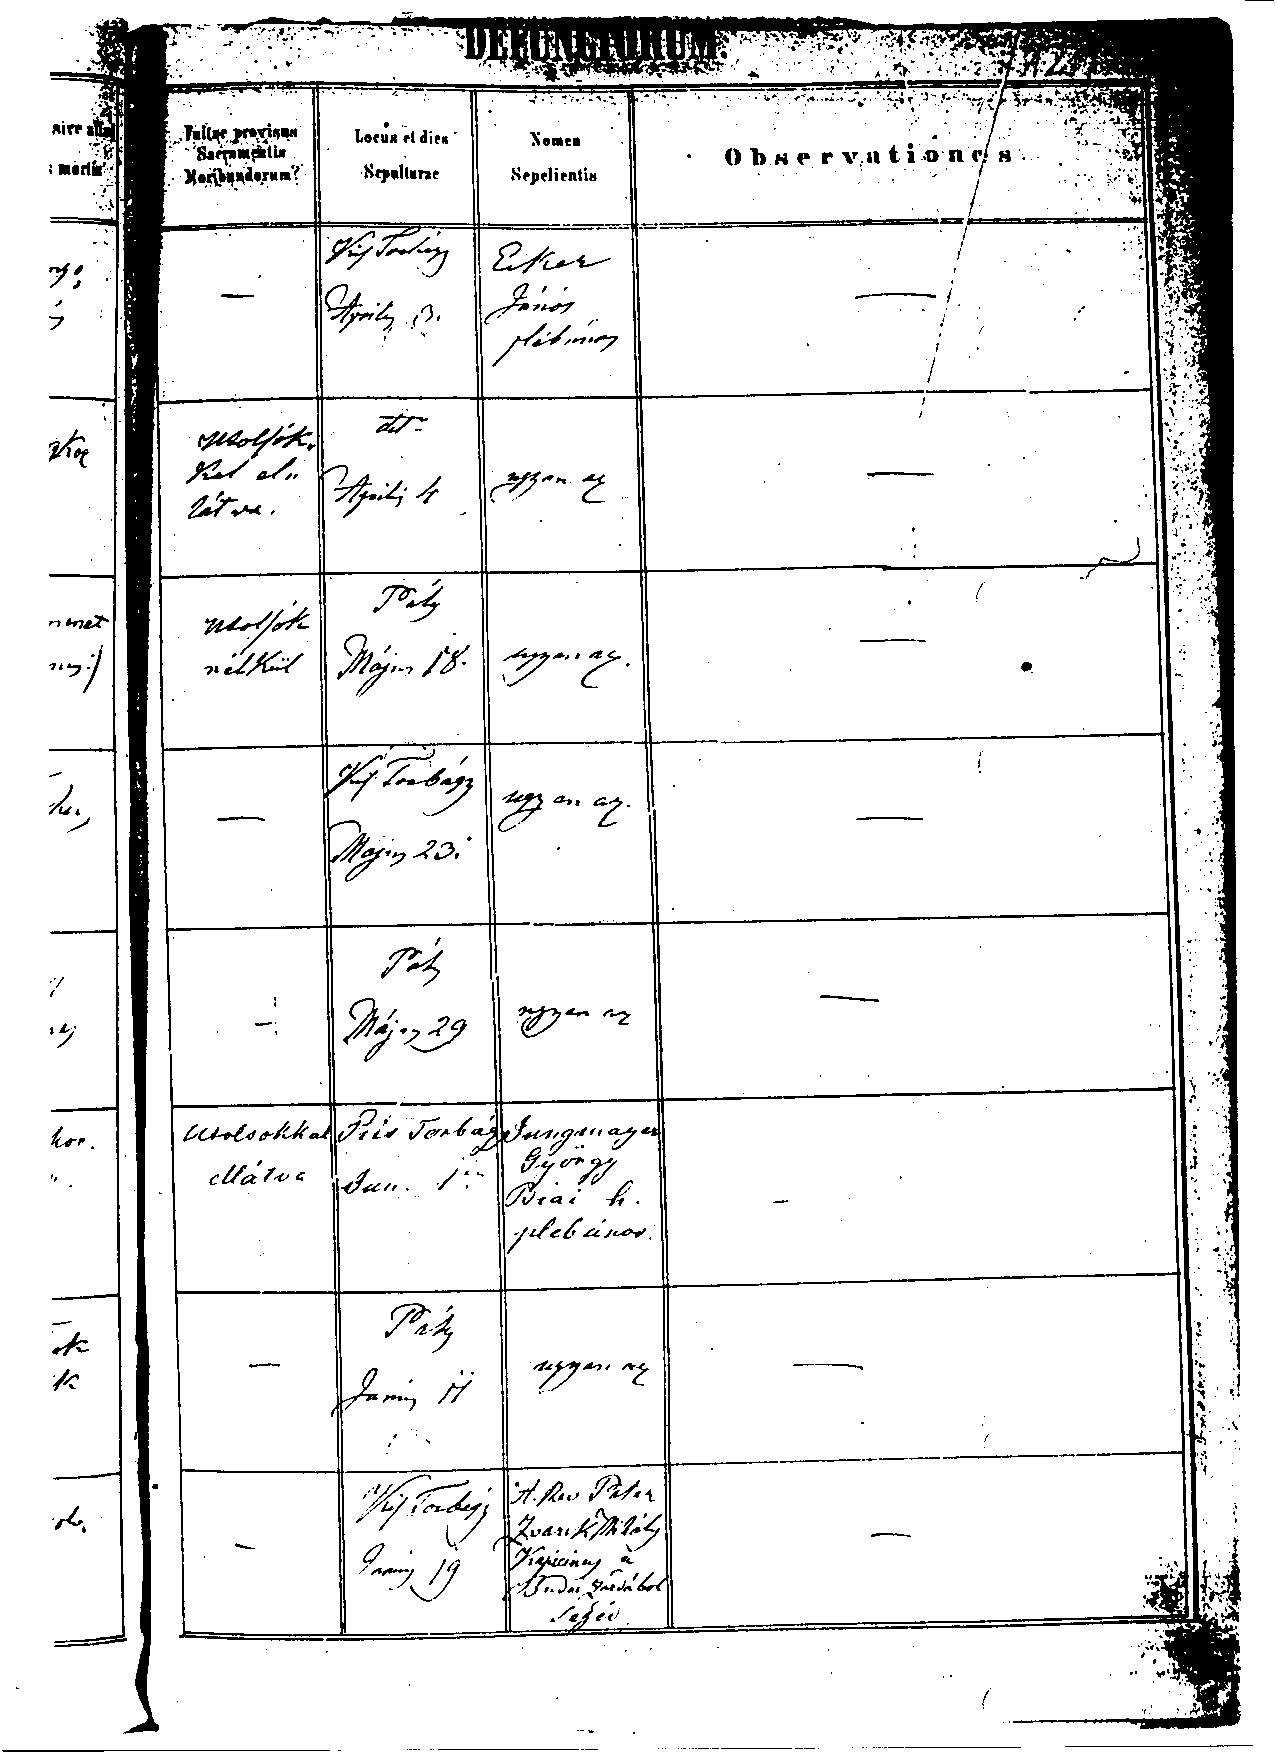 DEFUNCTORUM.
Fuitne provisus
Sacramentis
Moribundorum?
Locus et dies
Sepulturae
Nomen
Sepelientis
Observationes
—
Kis Torbágy
Április 3.
Eker
János
plébános
—
utolsók-
kal el-
látva.
dt
Április 4
ugyan az
—
utolsók
nélkül
Páty
Május 18.
ugyan az.
—
—
Kis Torbágy
Május 23.
ugyan az.
—
—
Páty
Május 29
ugyan az
—
Utolsokkal
ellátva
Piis Torbágy
Jun. 1
Jungmayer
György
Biai h.
plebános.
—
—
Páty
Junius 11
ugyan az
—
—
Kis Torbágy
Junius 19
A. Rev Pater
Zvarik Mihály
Kapicinus a
Budai zárdából
Segéd
—